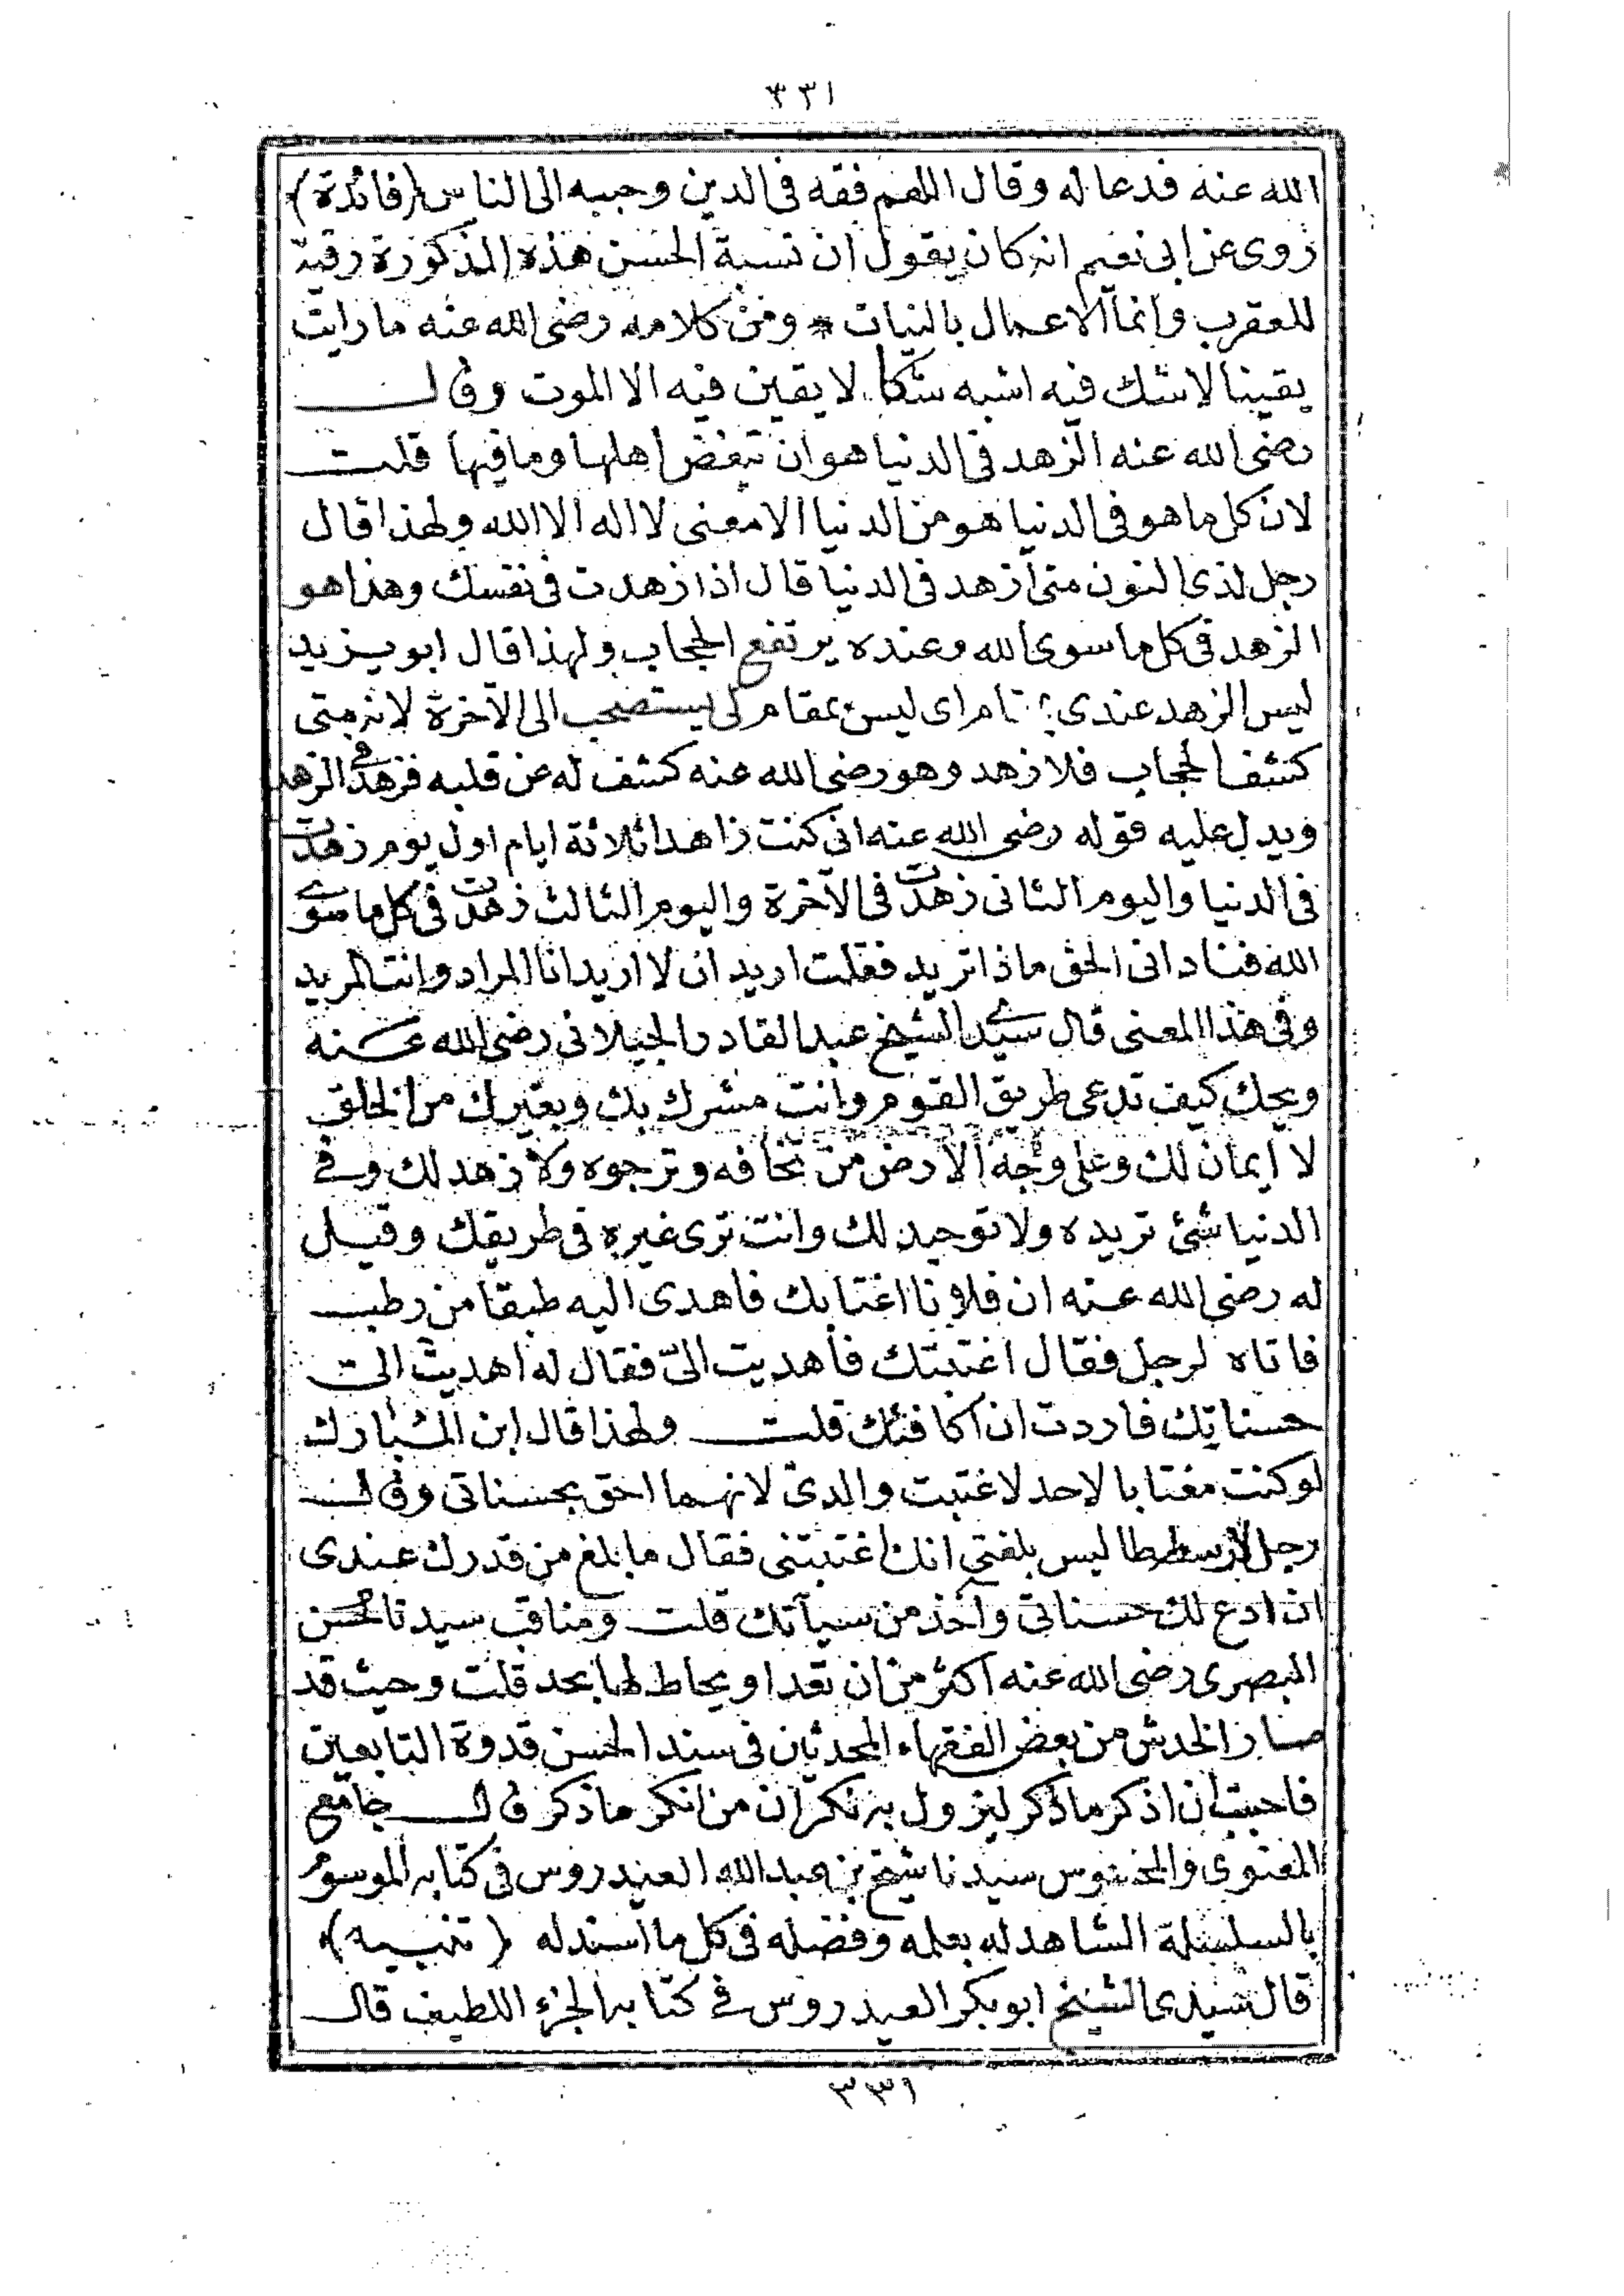 ٣٣١
الله عنه فدعا له وقال اللهم فقه فى الدين وحببه الى الناس (فائدة)
روى عن ابى نعيم انه كان يقول ان نسبة الحسن هذه المذكورة رقية
للعقرب وانما الاعمال بالنيات * ومن كلامه رضى الله عنه ما رايت
يقينا لاشك فيه اشبه شكا لا يقين فيه الا الموت وقال
رضى الله عنه الزهد فى الدنيا هو ان تبغض اهلها وما فيها قلت
لان كل ما هو فى الدنيا هو من الدنيا الا معنى لا اله الا الله ولهذا قال
رجل لذى النون متى ازهد فى الدنيا قال اذا زهدت فى نفسك وهذا هو
الزهد فى كل ما سوى الله وعنده يرتفع الحجاب ولهذا قال ابو يزيد
ليس الزهد عندى اى ليس بمقام لى يستصحب الى الآخرة لانه متى
كشف الحجاب فلا زهد وهو رضى الله عنه كشف له عن قلبه فزهد فى الزهد
ويدل عليه قوله رضى الله عنه انى كنت زاهدا ثلاثة ايام اول يوم زهدت
فى الدنيا واليوم الثانى زهدت فى الآخرة واليوم الثالث زهدت فى كل ما سوى
الله فنادانى الحق ماذا تريد فقلت اريد ان لا اريد انا المراد وانت المريد
وفى هذا المعنى قال سيدى الشيخ عبد القادر الجيلانى رضى الله عنه
ويحك كيف تدعى طريق القوم وانت مشرك بك وبغيرك من الخلق
لا ايمان لك وعلى وجه الارض من تخافه وترجوه ولا زهد لك وفى
الدنيا شئ تريده ولا توحيد لك وانت ترى غيره فى طريقك وقيل
له رضى الله عنه ان فلانا اغتابك فاهدى اليه طبقا من رطب
فاتاه الرجل فقال اغتبتك فأهديت الىّ فقال له اهديت الى
حسناتك فاردت ان اكافئك قلت ولهذا قال ابن المبارك
لو كنت مغتابا لاحد لاغتبت والدى لانهما احق بحسناتى وقال
رجل لارسطاطاليس بلغنى انك اغتبتنى فقال ما بلغ من قدرك عندى
ان ادع لك حسناتى وآخذ من سيآتك قلت ومناقب سيدنا الحسن
البصرى رضى الله عنه اكثر من ان تعد او يحاط لها بحد قلت وحيث قد
صار الخدش من بعض الفقهاء المحدثين فى سند الحسن قدوة التابعين
فاحببت ان اذكر ما ذكر ليزول به نكران من انكر ما ذكر قال جامع
المعنوى والمخصوص سيدنا شيخ بن عبد الله العيدروس فى كتابه الموسوم
بالسلسلة الشاهد له بعلمه وفضله فى كل ما اسند له (تنبيه)
قال سيدى الشيخ ابو بكر العيدروس فى كتابه الجزء اللطيف قال
٣٣١